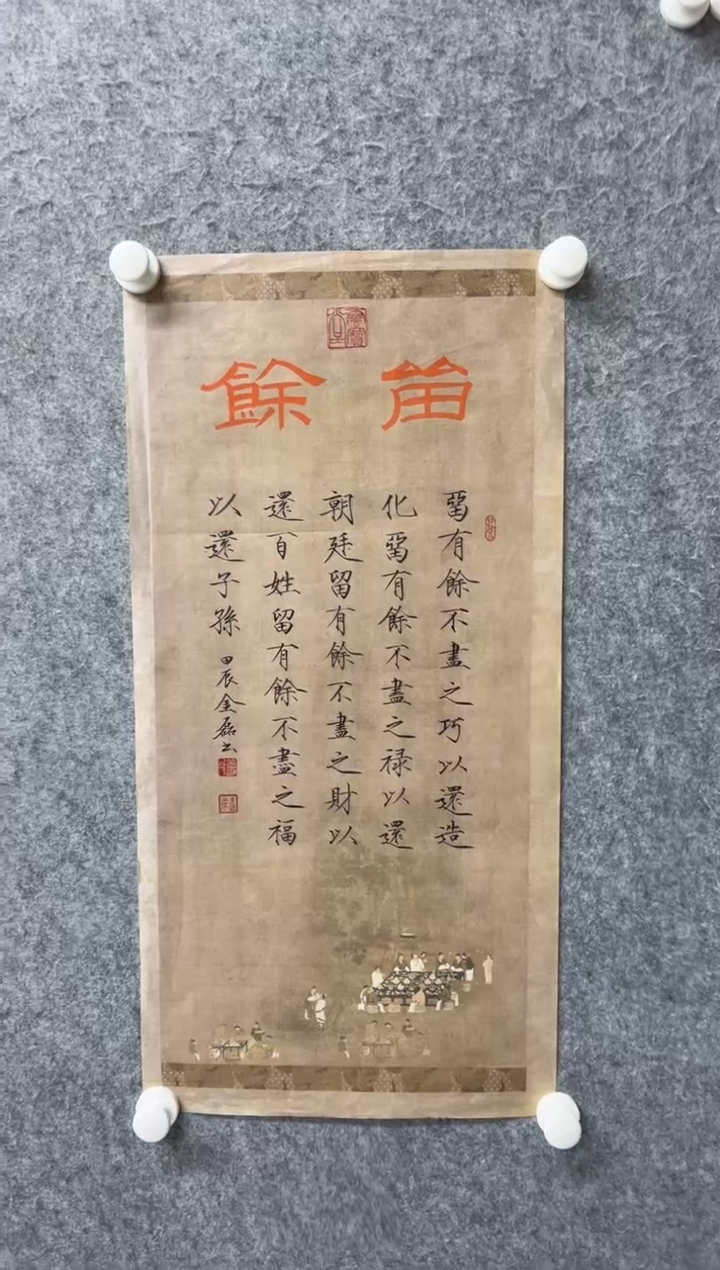 留餘
畱有餘不盡之巧以還造
化畱有餘不盡之禄以還
朝廷留有餘不盡之財以
還百姓留有餘不盡之福
以還子孫
甲辰金磊书